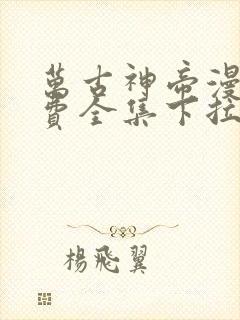 萬古神帝漫
費全集下拉
楊飛翼